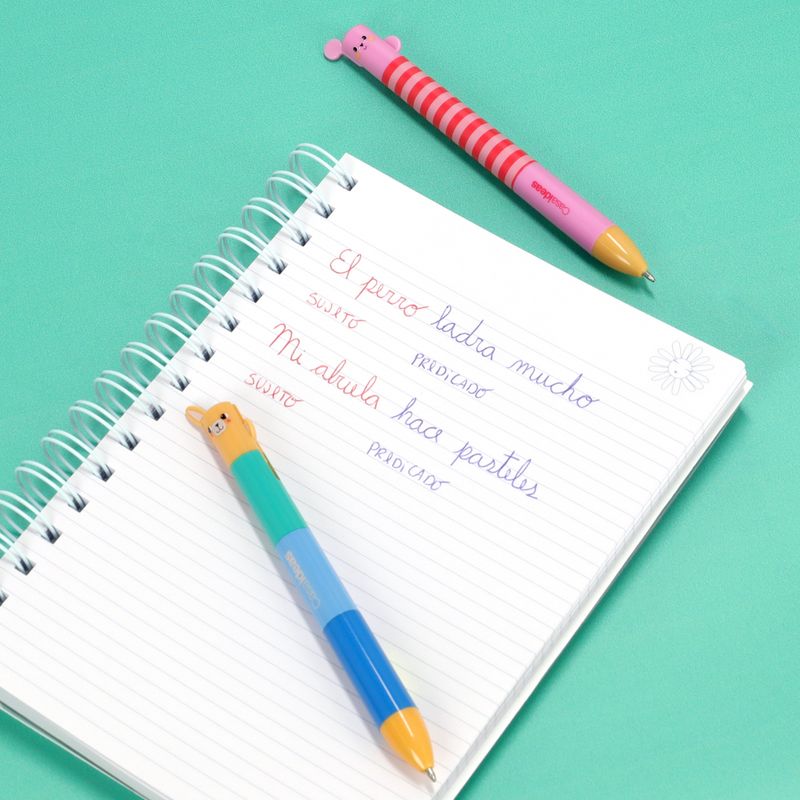 CasaIdeas
El perro ladra mucho
SUJETO PREDICADO
Mi abuela hace pasteles
SUJETO PREDICADO
CasaIdeas